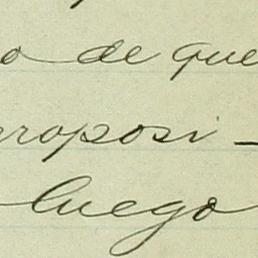 o de que
roposi-
luego